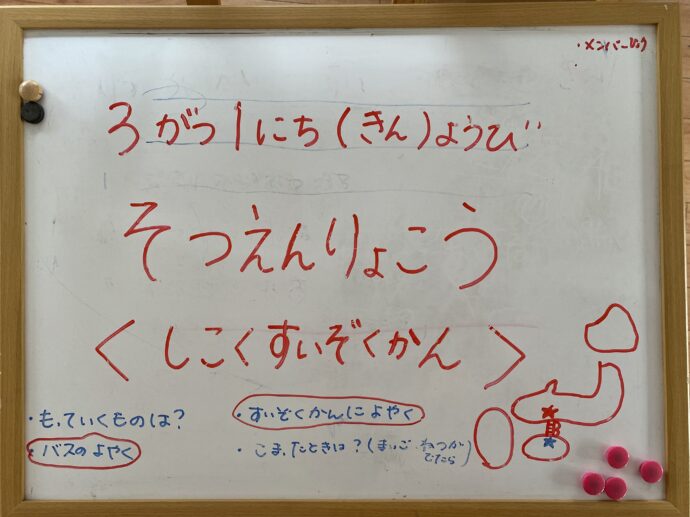 ・メンバーひょう
3がつ1にち(きん)ようび
そつえんりょこう
<しこくすいぞくかん>
・もっていくものは?
・すいぞくかんによやく
・バスのよやく
・こまったときは?(まいご ねつが でたら)